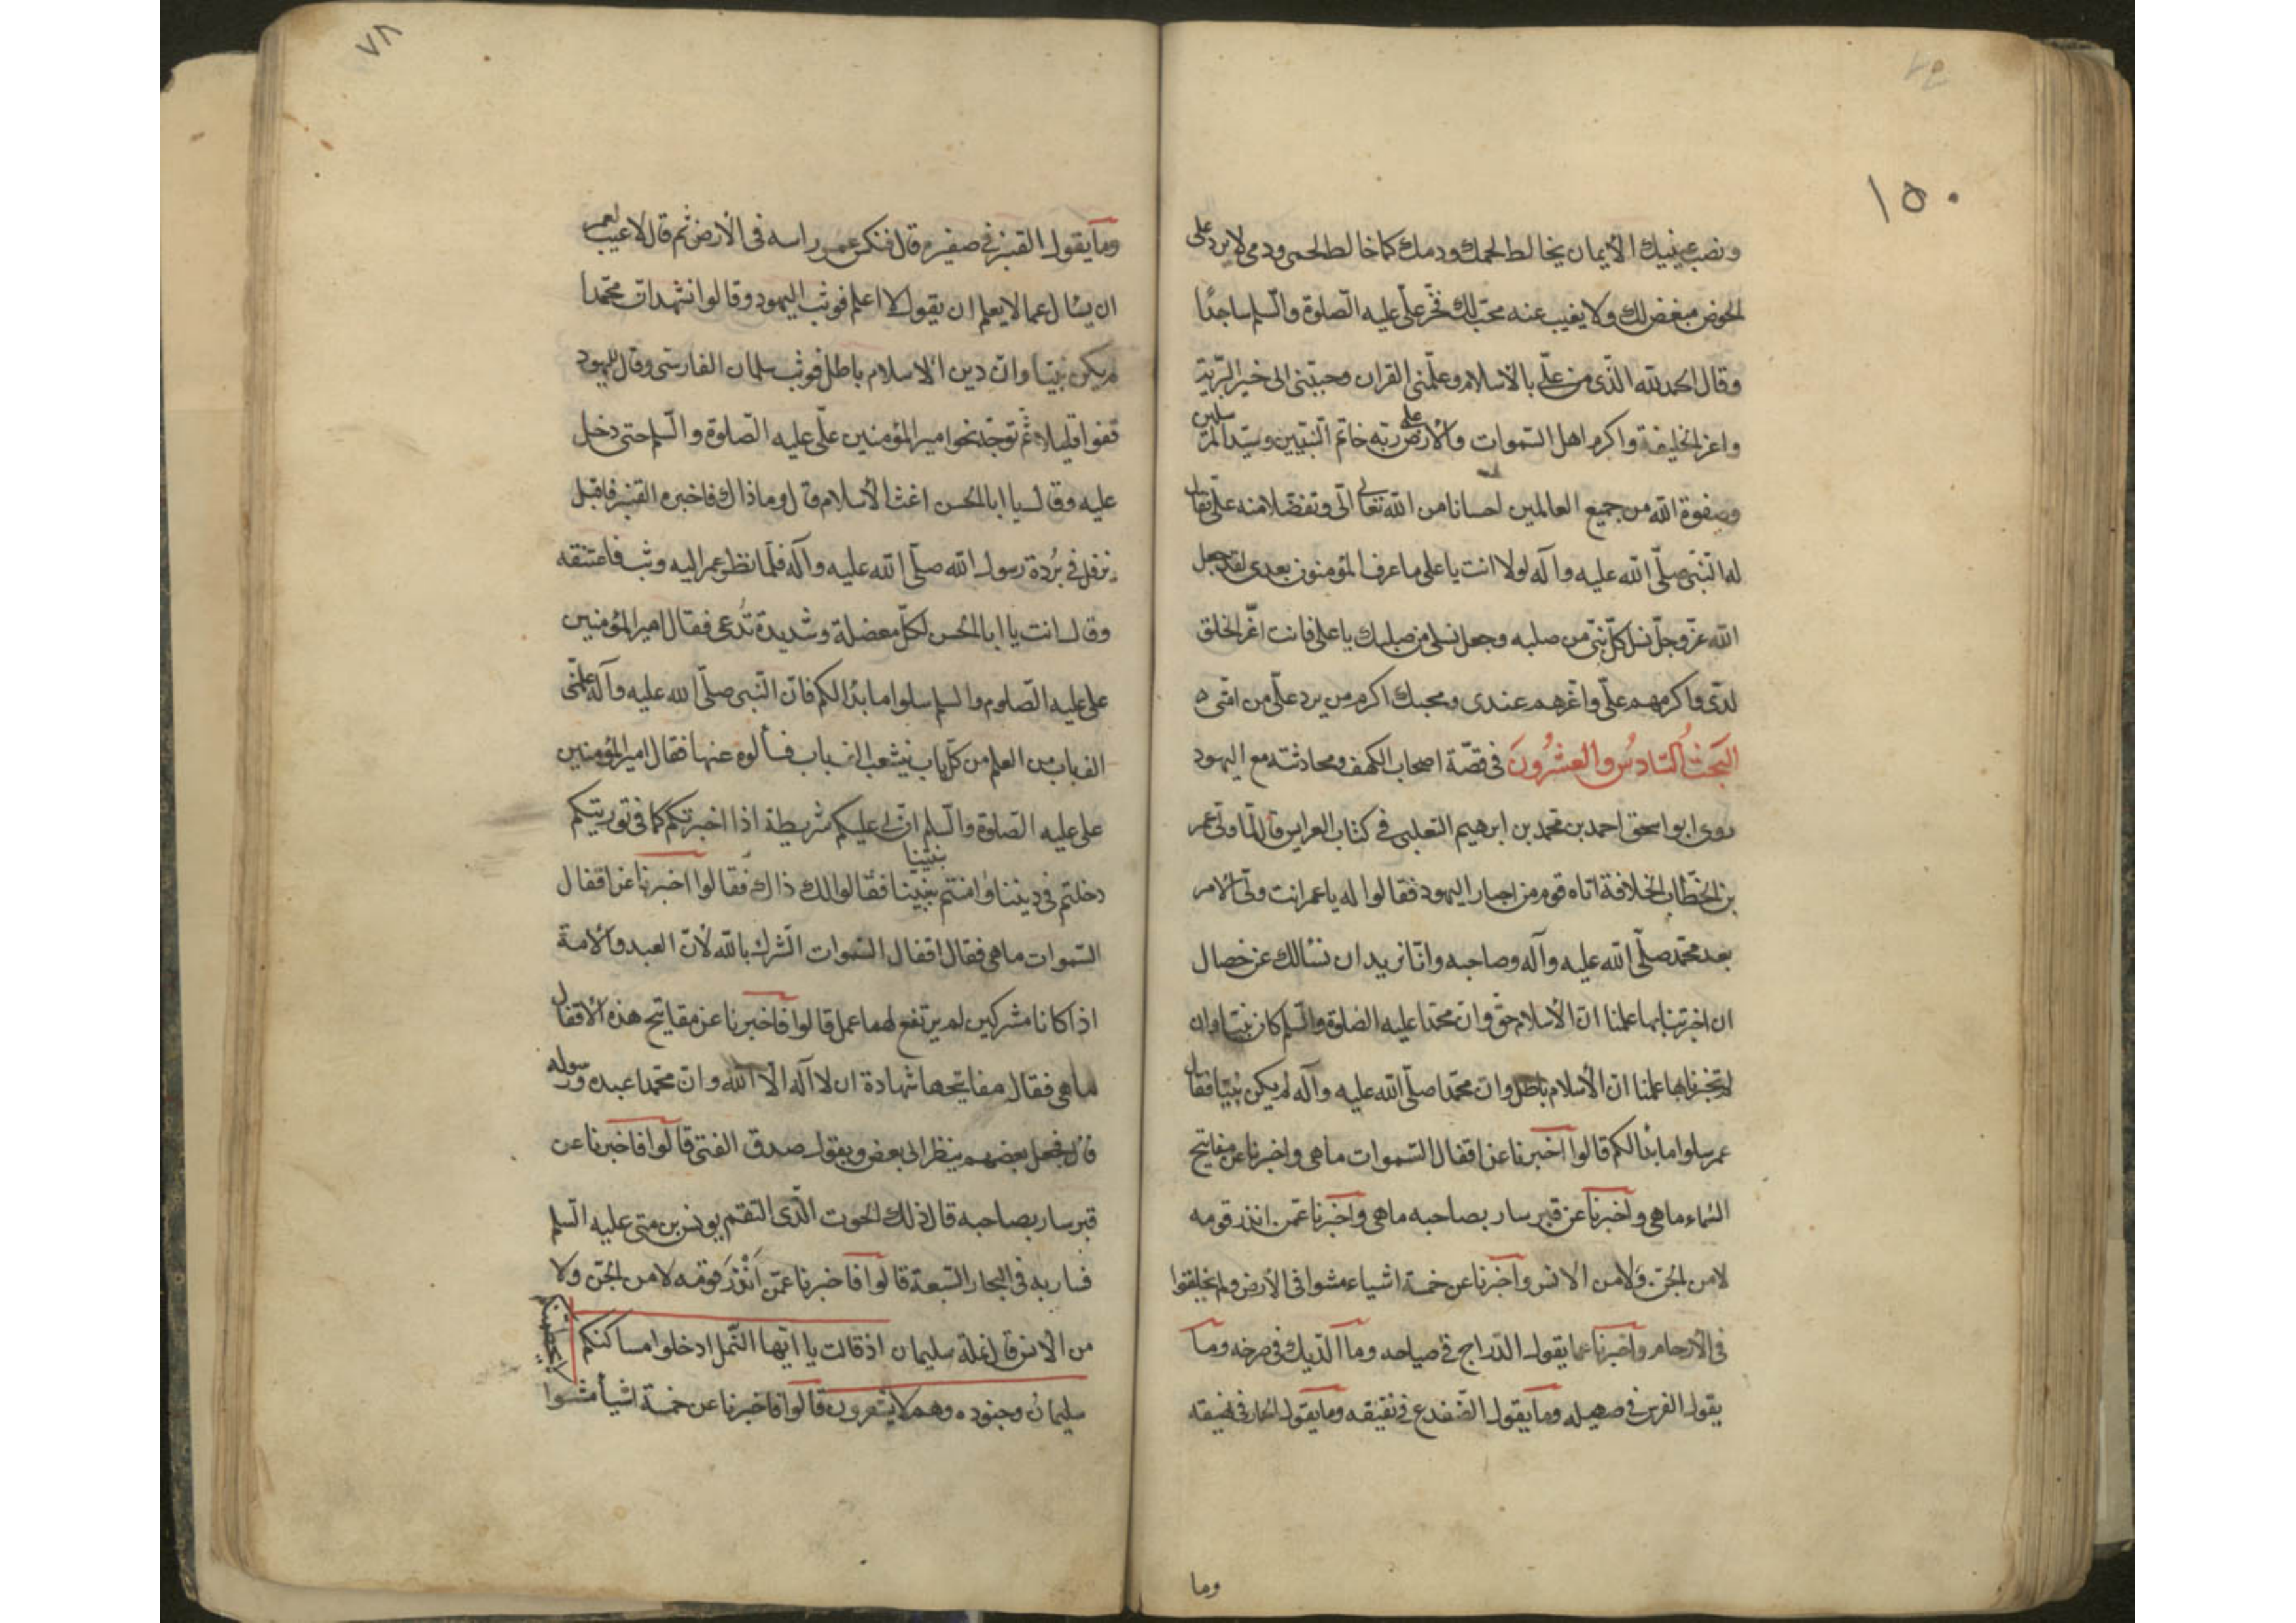 ١٥٠
ونصب عينيك الأيمان يخالط لحمك ودمك كما خالط لحمى ودمى لا يرد على
الحوض مبغض لك ولا يغيب عنه محب لك فخّر علىّ عليه الصّلوة والسّلم ساجدًا
وقال الحمد لله الّذى من علىّ بالأسلام وعلّمنى القران وحببنى الى خير البريّة
واعز الخليقة واكرم اهل السّموات والأرض على ربّه خاتم النّبيين وسيّد المرسلين
وصفوة الله من جميع العالمين احسانا من الله تعالى الىّ وتفضّلا منه علىّ فقال
له النّبى صلّى الله عليه وآله لولا انت يا على ما عرف المؤمنون بعدى لقد جعل
الله عزّ وجلّ نسل كلّ نبىّ من صلبه وجعل نسلى من صلبك يا على فانت اعّز الخلق
لدّى واكرمهم علىّ واعّزهم عندى ومحبك اكرم من يرد علىّ من امّتى ه
البَحثُ السّادسُ والعشرُونَ فى قصّة اصحاب الكهف ومحادثته مع اليهود
روى ابو اسحق احمد بن محمد بن ابرهيم الثعلبى فى كتاب العرايس قال لمّا ولّى عمر
بن الخطّاب الخلافة اتاه قوم من احبار اليهود فقالوا له يا عمر انت ولّى الامر
بعد محمّد صلّى الله عليه وآله وصاحبه وانّا نريد ان نسالك عن خصال
ان اخبرتنا بها علمنا انّ الأسلام حقّ وانّ محمّدا عليه الصّلوة والسّلم كان نبيّا وان
لم تخبرنا بها علمنا انّ الأسلام باطل وانّ محمّدا صلّى الله عليه وآله لم يكن نبيّا فقال
عمر سلوا ما بدا لكم قالوا اخبرنا عن اقفال السّموات ما هى واخبرنا عن مفاتيح
السّماء ما هى واخبرنا عن قبر سار بصاحبه ما هى واخبرنا عمّن انذر قومه
لا من الجنّ ولا من الانس واخبرنا عن خمسة اشياء مشوا فى الأرض ولم يخلقوا
فى الأرحام واخبرنا عما يقول الدّراج فى صياحه وما الدّيك فى صرخه وما
يقول الفرس فى صهيله وما يقول الضّفدع فى نقيقه وما يقول الحمار فى نهيقه
وما
٧٨
وما يقول القنبر فى صفيره قال فنكس عمر راسه فى الأرض ثم قال لا عيب لعمر
ان يسال عما لا يعلم ان يقول لا اعلم فوثب اليهود وقالوا نشهد انّ محمّدا
لم يكن نبيّا وانّ دين الاسلام باطل فوثب سلمان الفارسى وقال لليهود
قفوا قليلا ثم توجّه نحو امير المؤمنين علّى عليه الصّلوة والسّلم حتى دخل
عليه وقال يا ابا الحسن اغث الأسلام قال وما ذاك فاخبره القنبر فاقبل
يرفل فى بُردة رسول الله صلّى الله عليه وآله فلمّا نظر عمر اليه وثب فاعتنقه
وقال انت يا ابا الحسن لكلّ معضلة وشديدة تُدعى فقال امير المؤمنين
على عليه الصّلوة والسلم سلوا ما بدا لكم فانّ النّبى صلّى الله عليه وآله علّمنى
الف باب من العلم من كلّ باب يتشعب الف باب فسألوه عنها فقال امير المؤمنين
على عليه الصّلوة والسّلم انّ لى عليكم شريطة اذا اخبرتكم كما فى توريتكم
دخلتم فى ديننا وامنتم بنبيّنا بنبيّنا فقالوا لك ذاك فقالوا اخبرنا عن اقفال
السّموات ما هى فقال اقفال السّموات الشّرك بالله لأنّ العبد والأمة
اذا كانا مشركين لم يرتفع لهما عمل قالوا فاخبرنا عن مفاتيح هذه الأقفال
ما هى فقال مفاتيحها شهادة ان لا اله الّا الله وانّ محمّدا عبده ورسوله
قال فجعل بعضهم ينظر الى بعض ويقول صدق الفتى قالوا فاخبرنا عن
قبر سار بصاحبه قال ذلك الحوت الّذى التقم يونس بن متى عليه السّلم
فسار به فى البحار السّبعة قالوا فاخبرنا عمّن اَنْذَرَ قومه لا من الجنّ ولا
من الأنس قال نملة سليمان اذ قالت يا ايّها النّمل ادخلوا مساكنكم لا يحطمنّكم
سليمانُ وجنوده وهم لا يشعرون قالوا فاخبرنا عن خمسة اشيأ مشوا